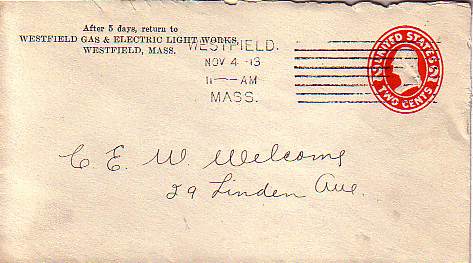 After 5 days, return to
WESTFIELD GAS & ELECTRIC LIGHT WORKS,
WESTFIELD, MASS.
WESTFIELD.
NOV 4 - 13
11 — AM
MASS.
UNITED STATES
TWO CENTS
C. E. W. Welcome
29 Linden Ave.